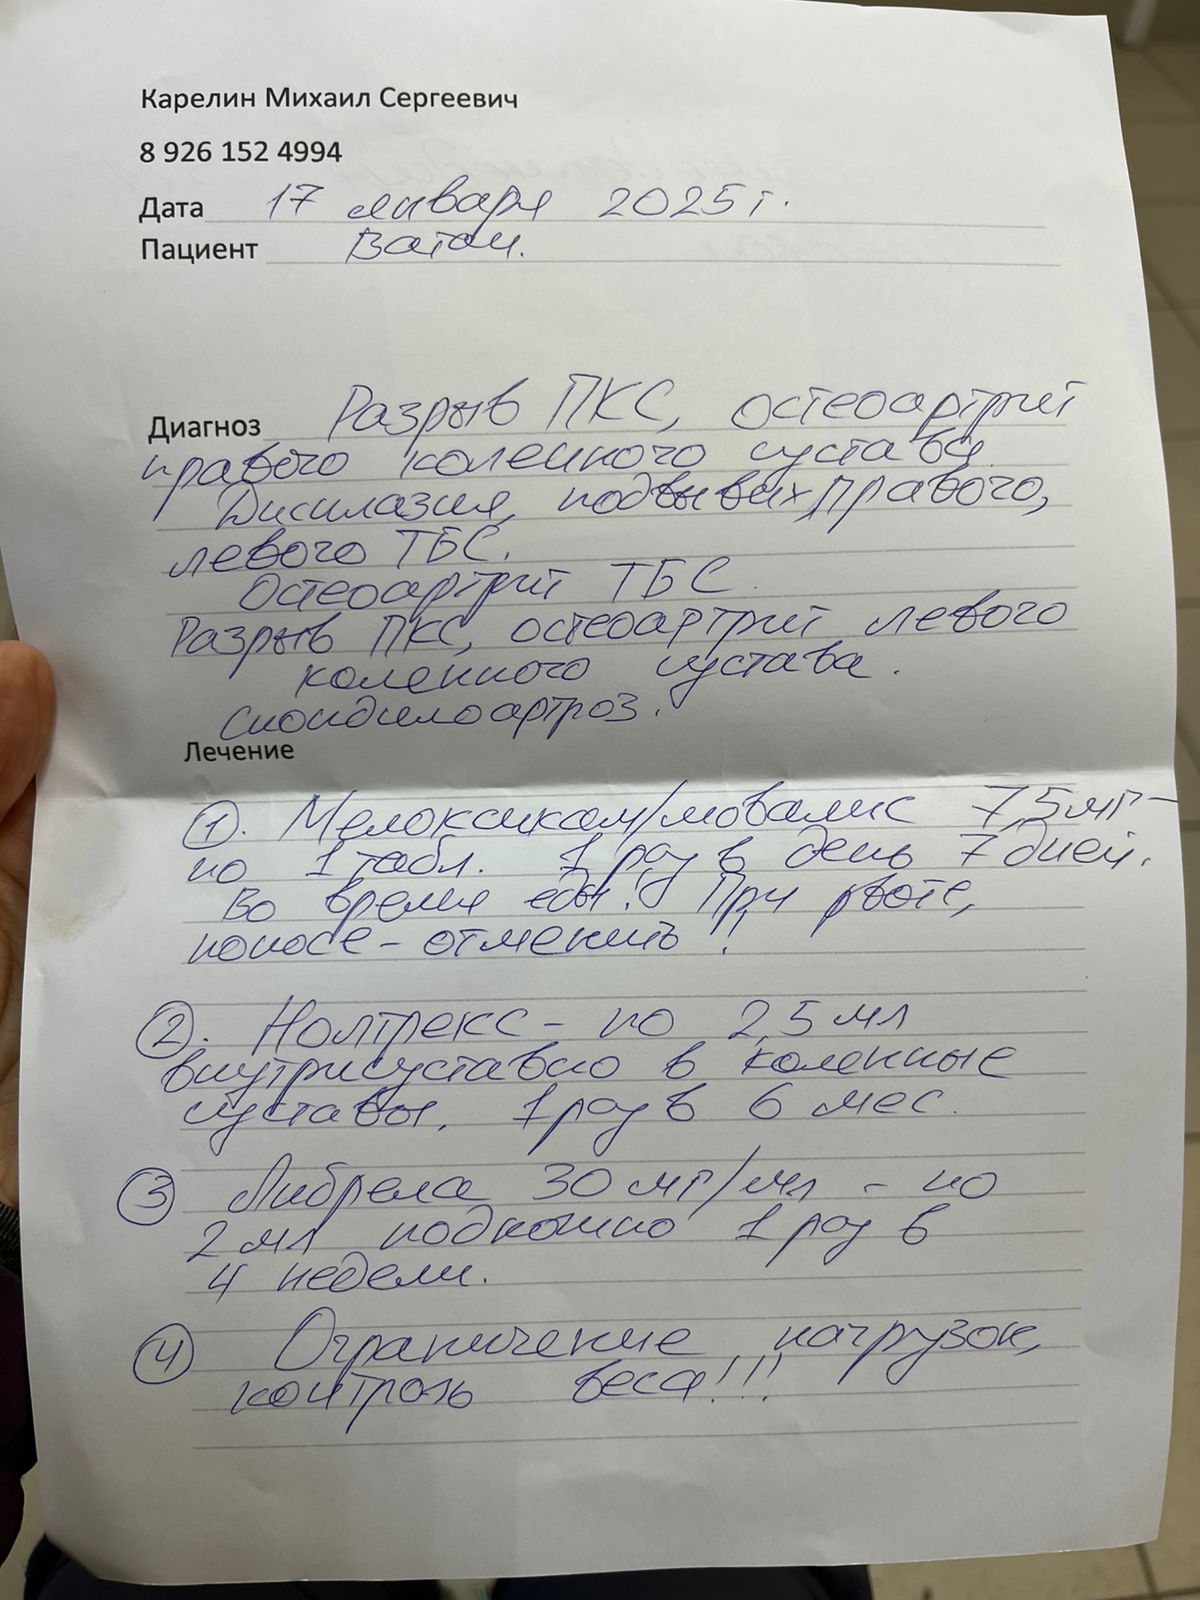 Карелин Михаил Сергеевич
8 926 152 4994
Дата 17 января 2025 г.
Пациент Ватан.
Диагноз Разрыв ПКС, остеоартрит
правого коленного сустава.
Дисплазия, подвывих правого,
левого ТБС.
Остеоартрит ТБС.
Разрыв ПКС, остеоартрит левого
коленного сустава.
Спондилоартроз.
Лечение
1. Мелоксикам/мовалис 7,5 мг -
по 1 табл. 1 раз в день 7 дней.
Во время еды! При рвоте,
поносе - отменить!
2. Нолтрекс - по 2,5 мл
внутрисуставно в коленные
суставы. 1 раз в 6 мес.
3 Либрела 30 мг/мл - по
2 мл подкожно 1 раз в
4 недели.
4 Ограничение нагрузок,
контроль веса!!!